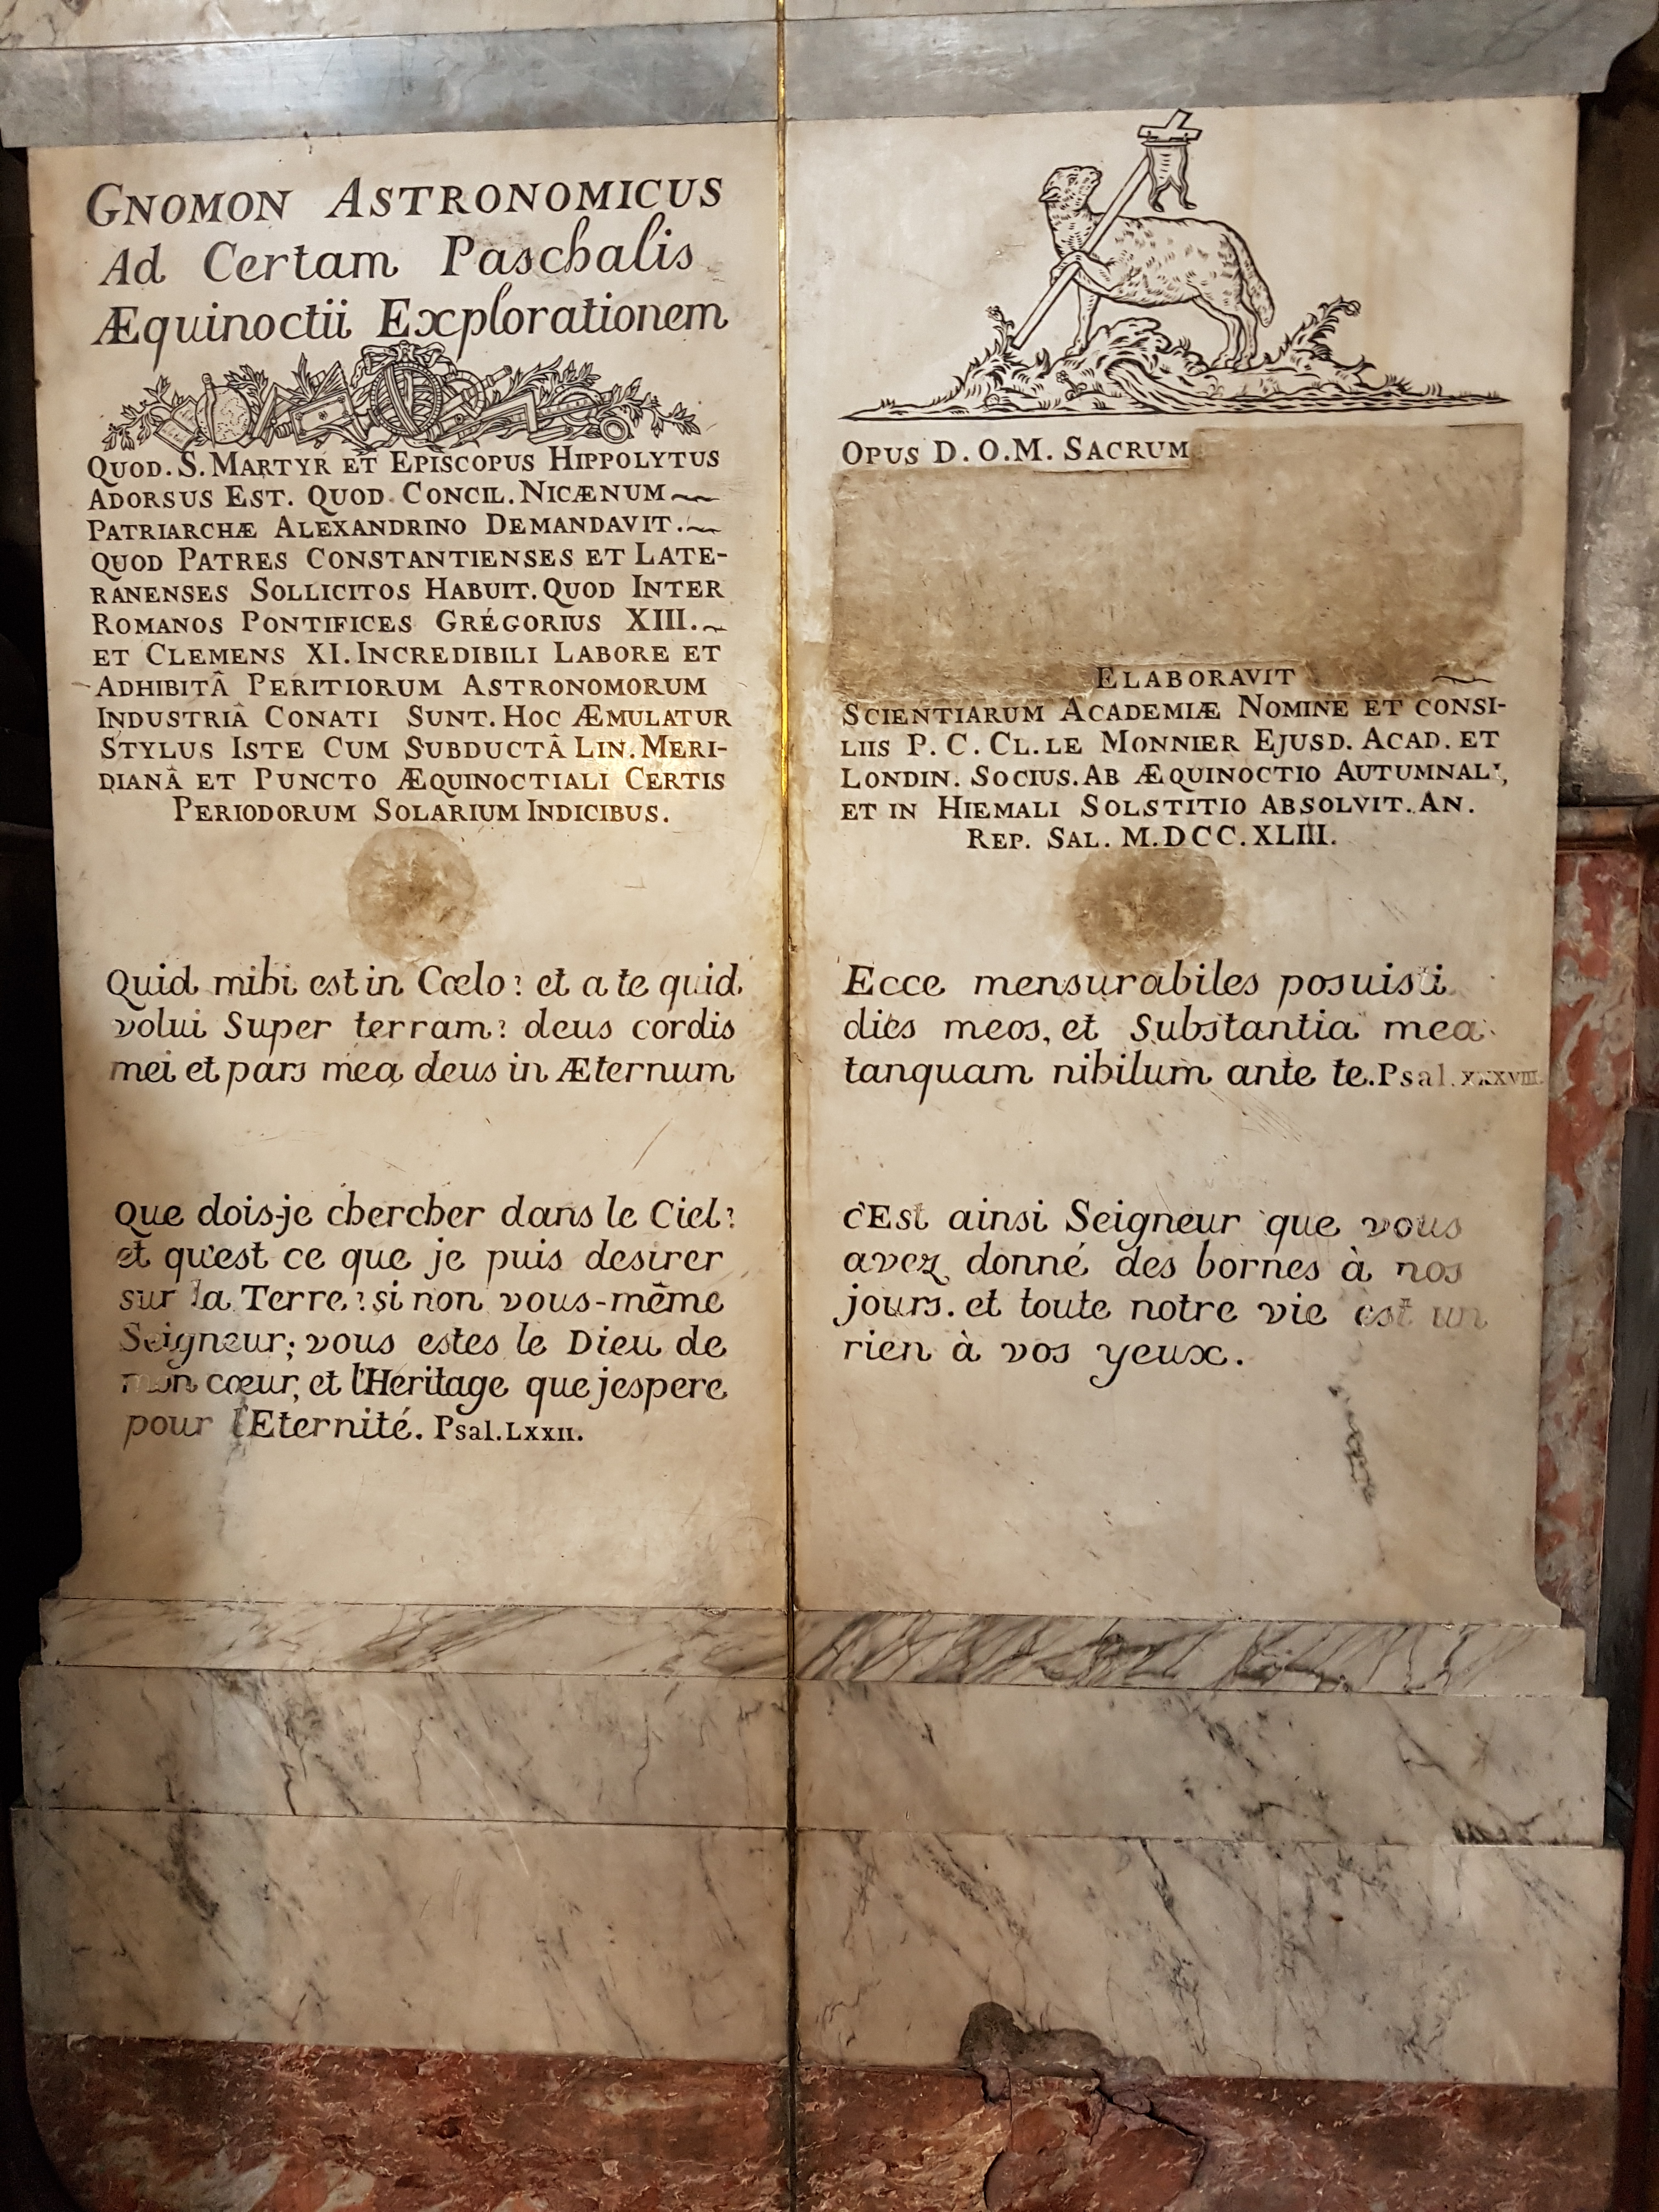 GNOMON ASTRONOMICUS
Ad Certam Paschalis
Æquinoctii Explorationem
QUOD. S. MARTYR ET EPISCOPUS HIPPOLYTUS
ADORSUS EST. QUOD CONCIL. NICÆNUM
PATRIARCHÆ ALEXANDRINO DEMANDAVIT.
QUOD PATRES CONSTANTIENSES ET LATE-
RANENSES SOLLICITOS HABUIT. QUOD INTER
ROMANOS PONTIFICES GRÉGORIUS XIII.
ET CLEMENS XI. INCREDIBILI LABORE ET
ADHIBITÂ PERITIORUM ASTRONOMORUM
INDUSTRIÂ CONATI SUNT. HOC ÆMULATUR
STYLUS ISTE CUM SUBDUCTÂ LIN. MERI-
DIANÂ ET PUNCTO ÆQUINOCTIALI CERTIS
PERIODORUM SOLARIUM INDICIBUS.
Quid mihi est in Cœlo? et a te quid
volui Super terram? deus cordis
mei et pars mea deus in Æternum
Que dois-je chercher dans le Ciel?
et qu'est ce que je puis desirer
sur la Terre? si non vous-même
Seigneur; vous estes le Dieu de
mon cœur, et l'Heritage que j'espere
pour l'Eternité. Psal. LXXII.
OPUS D. O. M. SACRUM
ELABORAVIT
SCIENTIARUM ACADEMIÆ NOMINE ET CONSI-
LIIS P. C. CL. LE MONNIER EJUSD. ACAD. ET
LONDIN. SOCIUS. AB ÆQUINOCTIO AUTUMNALI,
ET IN HIEMALI SOLSTITIO ABSOLVIT. AN.
REP. SAL. M.DCC.XLIII.
Ecce mensurabiles posuisti
dies meos, et Substantia mea
tanquam nihilum ante te. Psal. XXXVIII.
c'Est ainsi Seigneur que vous
avez donné des bornes à nos
jours. et toute notre vie est un
rien à vos yeux.